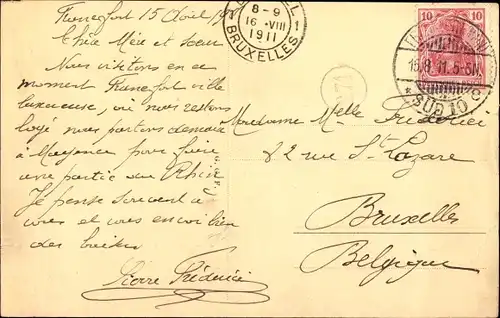 Francfort 15 Août 19
Chère Mère et sœur
Nous visitons en ce
moment Francfort ville
luxueuse, où nous restons
logé nous partons demain
à Mayence pour faire
une partie du Rhin
Je pense souvent à
vous et vous envoi bien
des baisers
Pierre Frédérici
8-9
16 VIII
1911
BRUXELLES
10 10
15.8.11.5-6N.
* SÜD 10 C
Madame Melle Frédérici
82 rue St Lazare
Bruxelles
Belgique